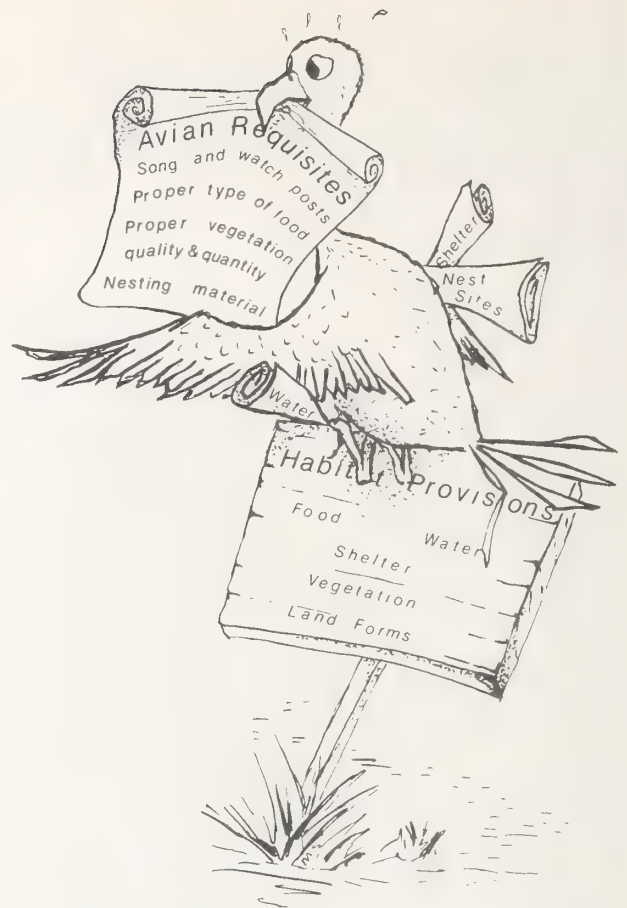 Avian Requisites
Song and watch posts
Proper type of food
Proper vegetation
quality & quantity
Nesting material
Shelter
Nest
Sites
Water
Habitat Provisions
Food
Water
Shelter
Vegetation
Land Forms